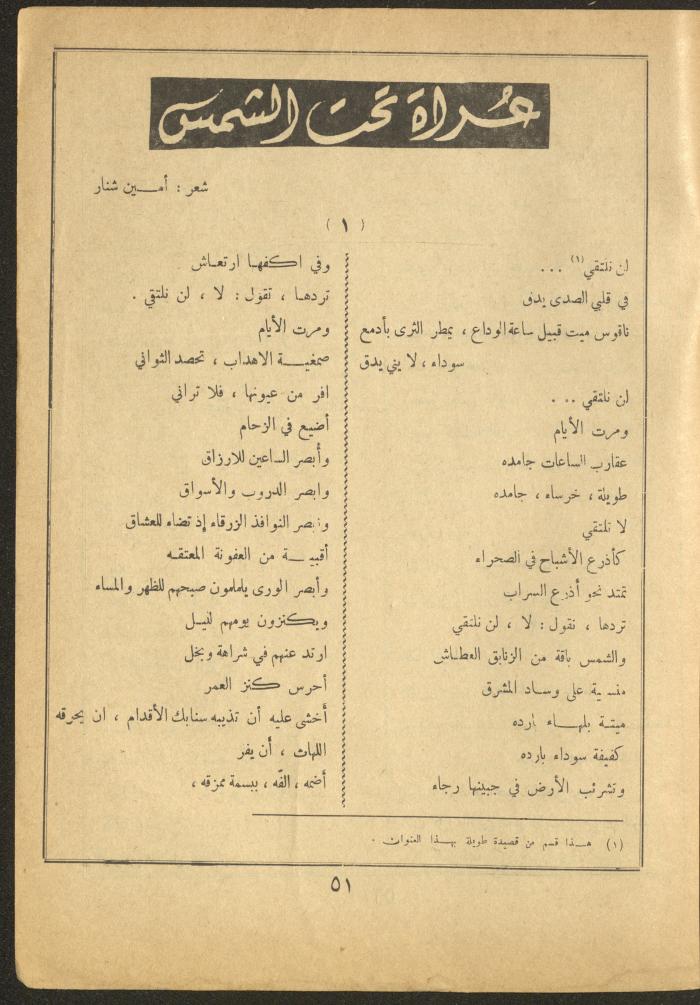 عُراة تحت الشمس
شعر : أمـــين شنار
( ١ )
لن نلتقي (١) . . .
في قلبي الصدى يدق
ناقوس ميت قبيل ساعة الوداع ، يمطر الثرى بأدمع
سوداء ، لا يني يدق
لن نلتقي . . .
ومرت الأيام
عقارب الساعات جامده
طويلة ، خرساء ، جامده
لا نلتقي
كأذرع الأشباح في الصحراء
تمتد نحو أذرع السراب
تردها ، نقول : لا ، لن نلتقي
والشمس باقة من الزنابق العطـاش
منسية على وسـاد المشرق
ميتـة بلهـــاء بارده
كفيفة سوداء بارده
وتشرئب الأرض في جبينها رجاء
وفي اكفهـا ارتعـاش
تردهـا ، تقول : لا ، لن نلتقي .
ومرت الأيام
صمغيــة الاهداب ، تحصد الثواني
افر من عيونها ، فلا تراني
أضيع في الزحام
وأُبصر الساعين للارزاق
وابصر الدروب والأسواق
وابصر النوافذ الزرقاء إذ تضاء للعشاق
أقبيـــة من العفونة المعتقـه
وأبصر الورى يلملمون صبحهم للظهر والمساء
ويكنزون يومهم لليـل
ارتد عنهم في شراهة وبخل
أحرس كنز العمر
أخشى عليه أن تذيبه سنابك الأقدام ، ان يحرقه
اللهاث ، أن يفر
أضمه ، الفّه ، ببسمة ممزقه ،
(١) هـــذا قسم من قصيدة طويلة بهـــذا العنوان .
٥١